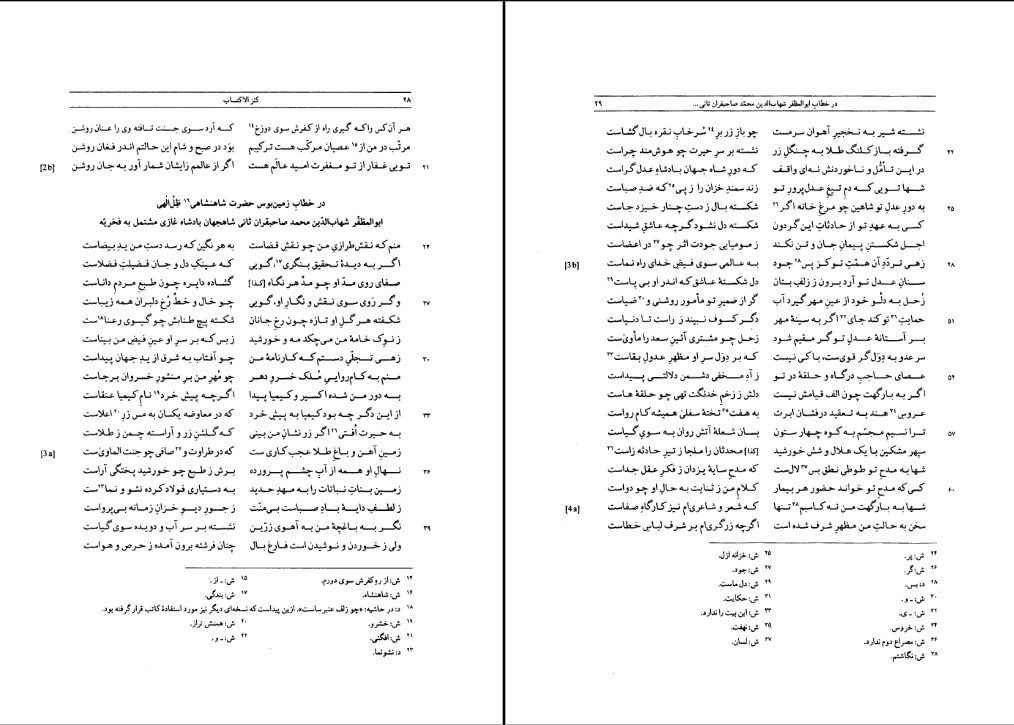 ۲۸ کنز الاکتساب
هر آن‌کس را که گیری راه از کفرش سوی دوزخ۱۴ که آرد سوی جنت تافته وی را عنان روشن
مرتّب در من از۱۵ عصیان مرکّب هست ترکیبم بوَد در صبح و شام این حالتم اندر فغان روشن
۲۱ تویی غفار از تو مغفرت امید عالم هست اگر از عالمم زایشان شمار آور به جان روشن [2b]
در خطاب زمین‌بوس حضرت شاهنشاهی۱۶ ظِلّ‌الٰهی
ابوالمظفّر شهاب‌الدّین محمد صاحبقران ثانی شاهجهان بادشاه غازی مشتمل به فخریّه
۲۴ منم که نقش‌طرازیِ من چو نقش قضاست به هر نگین که رسد دستِ من یدِ بیضاست
اگر به دیدهٔ تحقیق بنگری۱۷، گویی که عینکِ دل و جان فضیلتِ فضلاست
صفای روی مدّ او چو مدّ هر نگاه [کذا] گشاده دایره چون طبع مردم داناست
۲۷ وگر رَوی سوی نقش و نگار او، گویی چو خال و خطّ رُخ دلبران همه زیباست
شکفته هر گل او تازه چون رخ جانان شکسته پیچ طنابش چو گیسوی رعنا۱۸ست
ز نوک خامهٔ من می‌چکد مه و خورشید ز بس که بر سر او عین فیض من بیناست
۳۰ زهی تجلّی دستم که کارنامهٔ من چو آفتاب به شرق از یدِ جهان پیداست
منم به کام‌رواییِ مُلک خسرو دهر چو مُهر من بر منشور خسروان برجاست
به دور من شده اکسیر و کیمیا پیدا اگرچه پیش خرد۱۹ نام کیمیا عنقاست
۳۳ از این دگر چه بود کیمیا به پیش خرد که در معاوضه یکان به مس زر۲۰ اعلاست
به حیرت اُفتی۲۱ اگر زر نشان من بینی که گلشن زر و آراسته چمن ز طلاست
زمین آهن و باغ طلا عجب کاری ست که در طراوت و۲۲ صافی چو جنت المأویٰ‌ست [3a]
۳۶ نهال او همه از آب چشم پرورده برش ز طبع چو خورشید پختگی آراست
زمین بناتِ نباتات را به مهدِ حدید به دستیاری فولاد کرده نشو و نما۲۳ست
ز لطف دایهٔ باد صباست بی‌منّت ز جورِ دیوِ خزانِ زمانه بی‌پرواست
۳۹ نگر به باغچهٔ من به آهوی زرّین نشسته بر سر آب و دویده سوی گیاست
ولی ز خوردن و نوشیدن است فارغ بال چنان فرشته برون آمده ز حرص و هواست
۱۴ ش: از ره کفرش سوی دورم. ۱۵ ش: ـ از.
۱۶ ش: شاهنشاه. ۱۷ ش: بندگی.
۱۸ د: در حاشیه: «چو زلف عنبرساست». ازین پیداست که نسخه‌ای دیگر نیز مورد استفادهٔ کاتب قرار گرفته بود.
۱۹ ش: خشرو. ۲۰ ش: همنش تراز.
۲۱ ش: افگنی. ۲۲ ش: ـ و.
۲۳ د: نشونما.
در خطابِ ابوالمظفر شهاب‌الدین محمّد صاحبقران ثانی... ۲۹
نشسته شیر به نخجیر آهوان سرمست چو بازِ زر برِ۲۴ سُرخابِ نقره بال گشاست
۴۲ گرفته باز کلنگ طلا به چنگلِ زر نشسته بر سرِ حیرت چو هوش‌مند چراست
در این تأمّل و ناخوردنش نه‌ای واقف که دورِ شاه جهان بادشاهِ عدل گراست
شها تویی که دمِ تیغِ عدل‌پرور تو زند سمندِ خزان را ز پی۲۵ که ضدِ صباست
۴۵ به دورِ عدلِ تو شاهین چو مرغِ خانه اگر۲۶ شکسته بال ز دستِ چنار خیزد جاست
کسی به عهدِ تو از حادثاتِ این دور شکسته دل نشود گرچه عاشق شیداست
اجل شکستنِ پیمانِ جان و تن نکند ز مومیایی جودت اثر چو۲۷ در اعضاست
۴۸ زهی تردّدِ آن همّتِ تو کز پس۲۸ جود به عالمی سوی فیض خدای راه نماست [3b]
سنانِ عدل تو آرد برون ز زلفِ بتان دل شکستهٔ عاشق که اندر او بی پاست۲۹
زُحل به دلْوِ خود از عین مهر گیرد آب گر از ضمیرِ تو مأمور روشنی و۳۰ ضیاست
۵۱ حمایتِ۳۱ تو کند جای۳۲ اگر به سینهٔ مهر دگر کسوف نبیند ز راست تا دنیاست
بر آستانهٔ عدلِ تو گر مقیم شود زحل چو مشتری آئین سعد را مأوی‌ست
سر عدو به دوَل گر قوی‌ست، باکی نیست که بر دوَل سرِ او مظهرِ عدولِ بقاست۳۳
۵۴ عصای حاجبِ درگاه و حلقهٔ درِ تو ز آهِ مخفی دشمن دلالتی پیداست
اگر به بارگهت چون الف قیامش نیست دلش ز زخمِ خدنگت تهی چو حلقهٔ هاست
عروس۳۴ هند به تعقیدِ درفشان ابرت به هفت۳۵ تختهٔ سفلیٰ همیشه کام رواست
۵۷ ترا نسیم مجسّم به کوه چهار ستون بسان شعلهٔ آتش روان به سوی گیاست
سپهر مشکین با یک هلال و شش خورشید [کذا] محدثان را ملجا ز تیرِ حادثه زاست۳۶
شها به مدح تو طوطی نطق بس۳۷ لال‌ست که مدح سایهٔ یزدان ز فکر عقل جداست
۶۰ کسی که مدح تو خواند حضور هر بیمار کلام من ز ثنایت به حال او چو دواست
شها به بارگهت من نه کاسبم۳۸ تنها که شعر و شاعری‌ام نیز کارگاهِ صفاست [4a]
سخن به حالتِ من مظهرِ شرف شده است اگرچه زرگری‌ام بر شرف لبابی خطاست
۲۴ ش: پر. ۲۵ ش: خزانه ازل.
۲۶ ش: گر. ۲۷ ش: جود.
۲۸ د: بس. ۲۹ ش: دل ماست.
۳۰ ش: ـ و. ۳۱ ش: حکایت.
۳۲ ش: ـ ی. ۳۳ ش: این بیت را ندارد.
۳۴ ش: خروس. ۳۵ ش: نهفت.
۳۶ ش: مصراع دوم ندارد. ۳۷ ش: لسان.
۳۸ ش: نگاشتم.